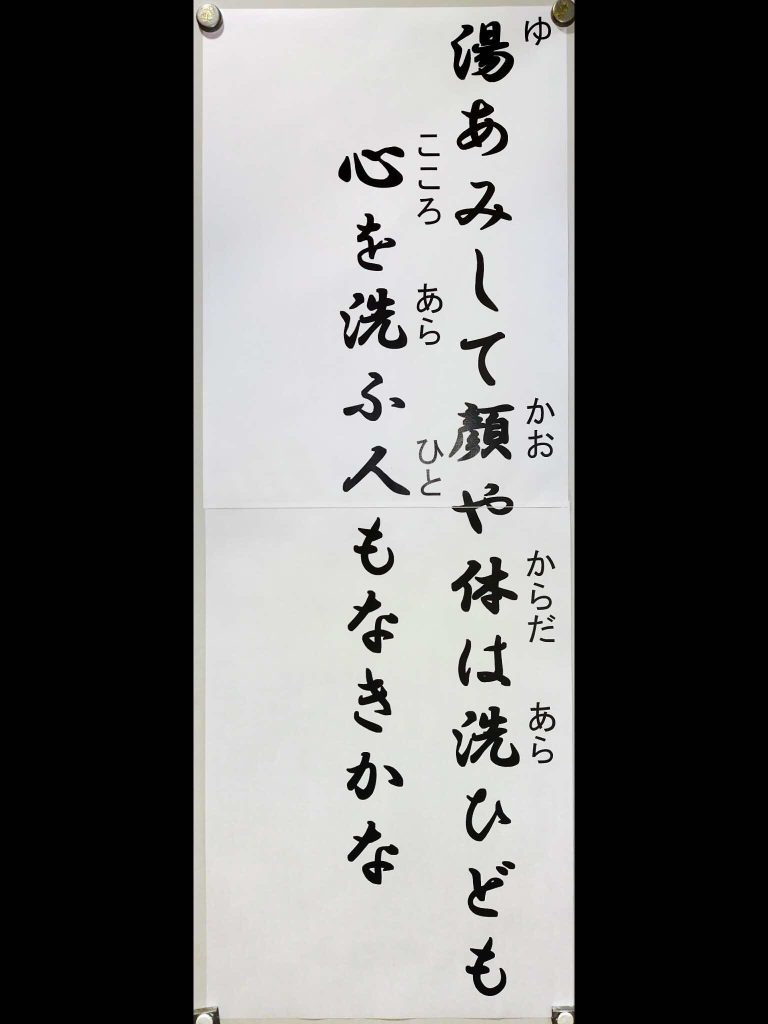 湯あみして顔や体は洗ひども
心を洗ふ人もなきかな
ゆ
かお
からだ
あら
こころ
あら
ひと